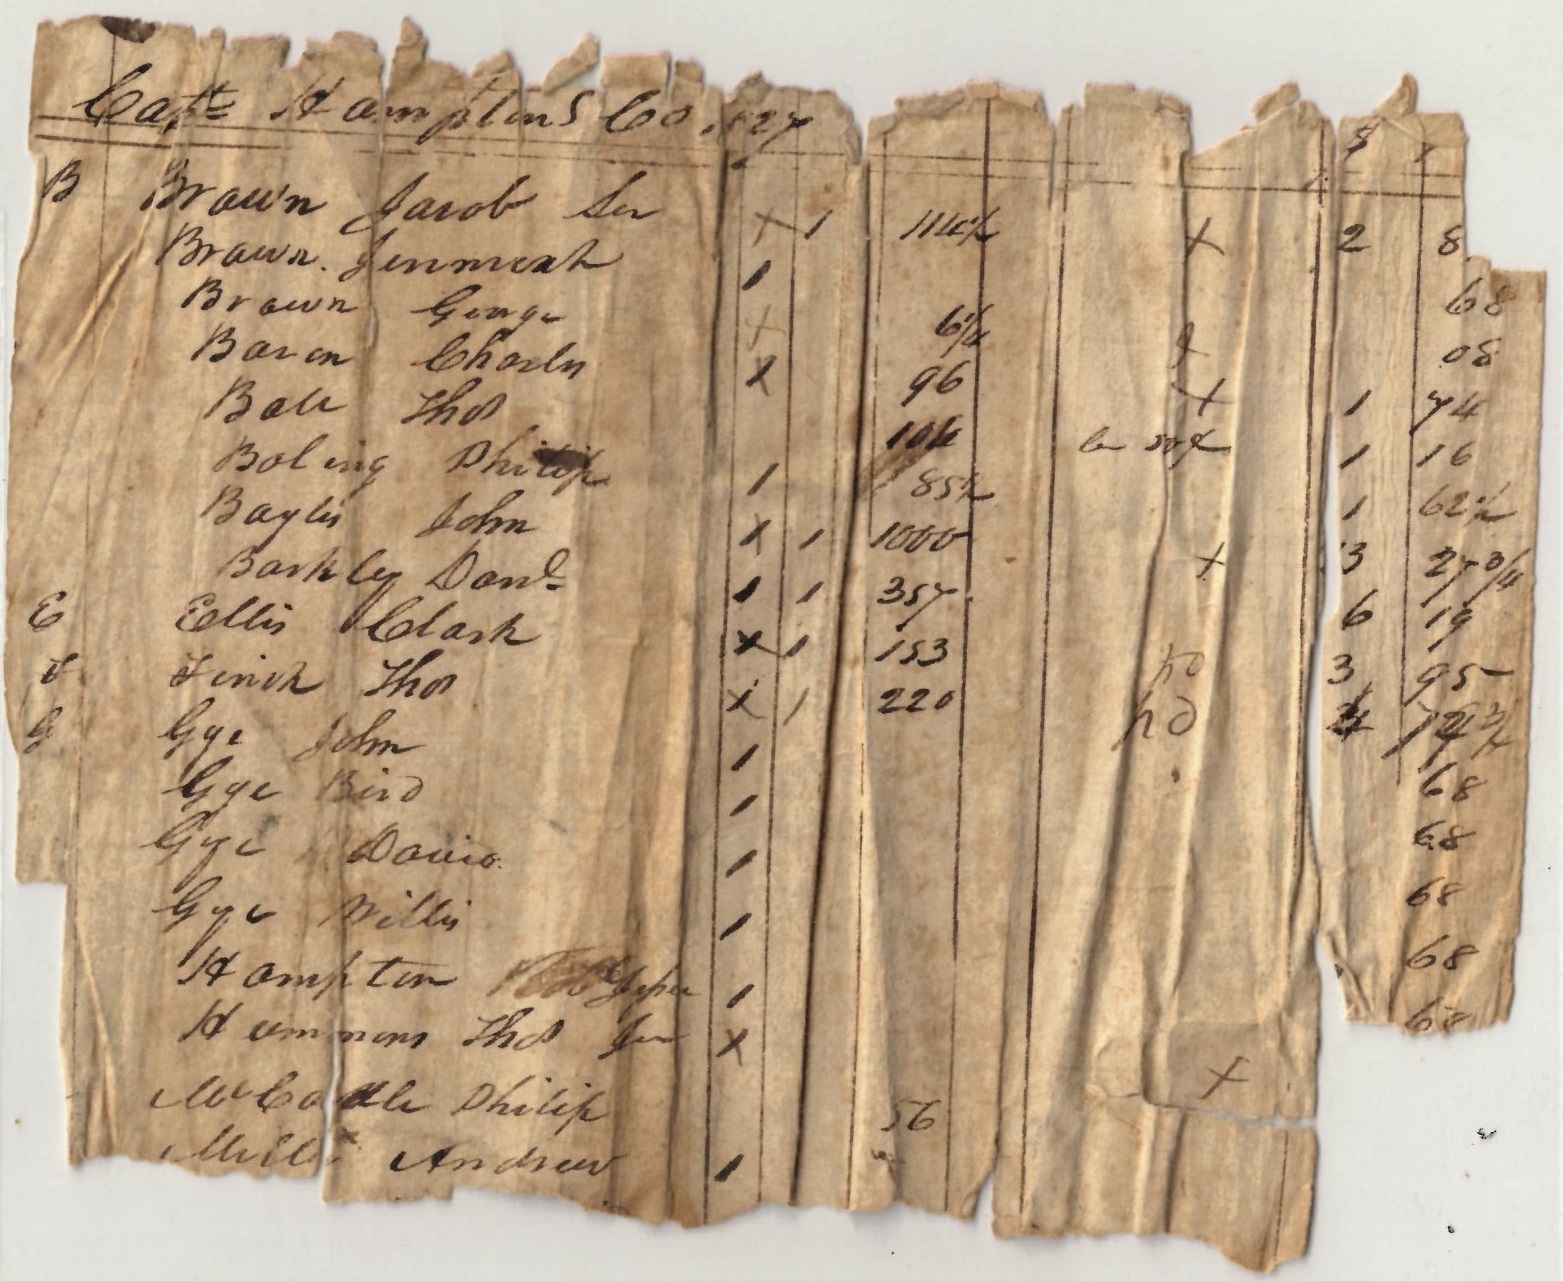 Capts Hamptons Co. 1827
$
B Brown Jacob Sen x 1 114 1/2 x 2 8
Brown Jeremiah 1 68
Brown George x 6 1/4 x 08
Baron Charles x 96 x 1 74
Ball Thos 106 50 1 16
Boling Philip 1 85 1/2 1 62 1/2
Baylis John x 1 1000 x 3 27 3/4
Barkley Danl 1 1 357 6 19
E Ellis Clark x 1 153 ho 3 95
F Finch Thos x 1 220 ho 4
G Gye John 1 68
Gye Bird 1 68
Gye David 1 68
Gye Willis 1 68
Hampton 1 68
Hummons Thos Jr x x
McCadle Philip 56
Andrew 1